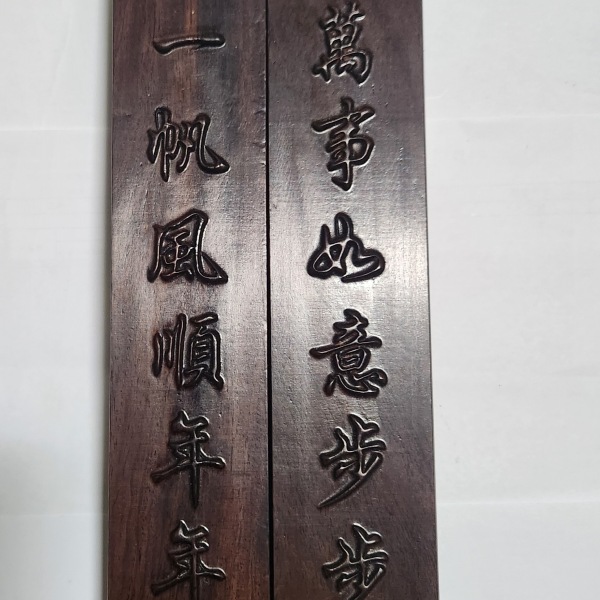 萬事如意步步
一帆風順年年